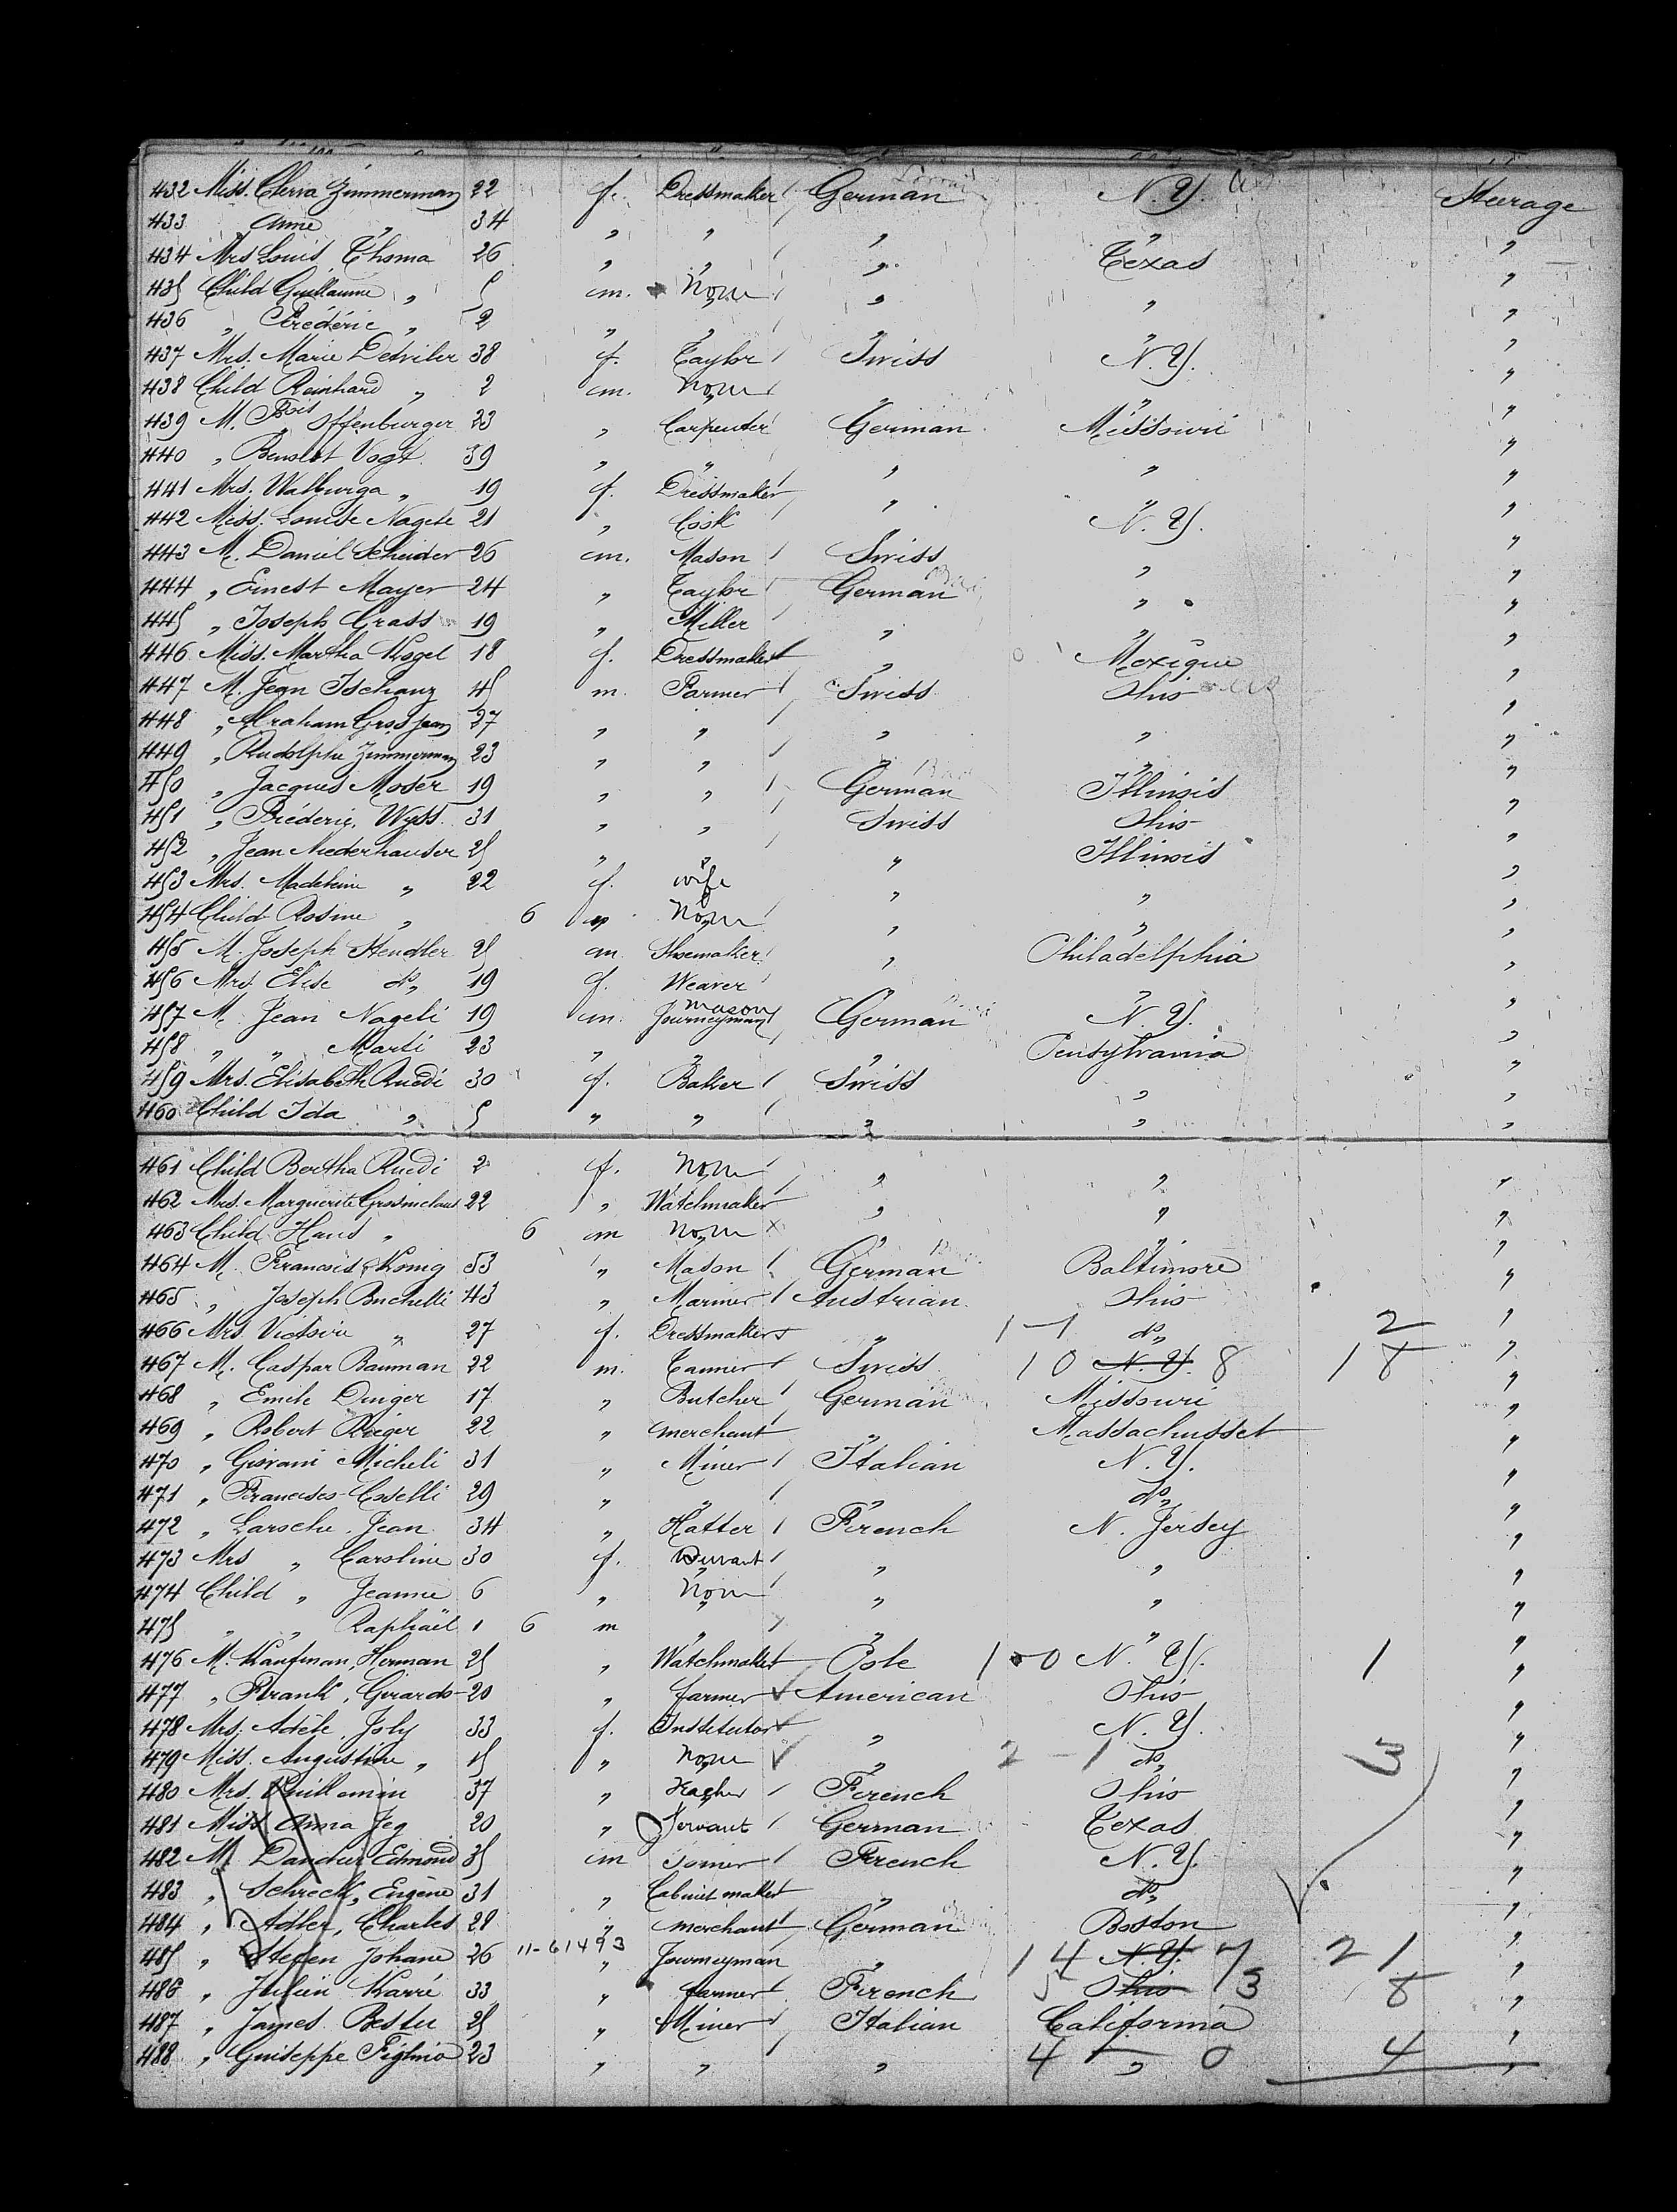 432 Miss. Clerva Zimmerman 22 f. Dressmaker German N. Y. Steerage
433 Anne „ 34 „ „ „ „ „
434 Mrs Louis Thoma 26 „ „ „ Texas „
435 Child Guillaume „ 5 m. None „ „ „
436 „ Fréderic „ 2 „ „ „ „ „
437 Mrs. Marie Detviler 38 f. Taylor Swiss N. Y. „
438 Child Reinhard „ 2 m. None „ „ „
439 M. Fois Offenburger 23 „ Carpenter German Missouri „
440 „ Benoist Vogt 39 „ „ „ „ „
441 Mrs. Walburga „ 19 f. Dressmaker „ „ „
442 Miss. Louise Nagele 21 „ Cook „ N. Y. „
443 M. Daniel Scheider 26 m. Mason Swiss „ „
444 „ Ernest Mayer 24 „ Taylor German „ „
445 „ Joseph Grass 19 „ Miller „ „ „
446 Miss. Martha Kogel 18 f. Dressmaker „ Mexique „
447 M. Jean Tschanz 45 m. Farmer Swiss Ohio „
448 „ Abraham Gros Jean 27 „ „ „ „ „
449 „ Rudolphe Zimmerman 23 „ „ „ „ „
450 „ Jacques Moser 19 „ „ German Illinois „
451 „ Fréderic Wyss 31 „ „ Swiss Ohio „
452 „ Jean Niederhauser 25 „ „ „ Illinois „
453 Mrs. Madeleine „ 22 f. wife „ „ „
454 Child Rosine „ 6 „ None „ „ „
455 M. Joseph Hendler 25 m. Shoemaker „ Philadelphia „
456 Mrs. Elise do 19 f. Weaver „ „ „
457 M. Jean Nageli 19 m. mason Journeyman German N. Y. „
458 „ „ Marti 23 „ „ „ Pensylvania „
459 Mrs. Elisabeth Ruedi 30 f. Baker Swiss „ „
460 Child Ida „ 5 „ „ „ „ „
461 Child Bertha Ruedi 2 f. None „ „ „
462 Mrs. Marguerite 22 „ Watchmaker „ „ „
463 Child Hans „ 6 m None „ „ „
464 M. Francois König 53 „ Mason German Baltimore „
465 „ Joseph Buchelli 43 „ Mariner Austrian Ohio „
466 Mrs. Victoire „ 27 f. Dressmaker „ 1 - 1 do 2 „
467 M. Caspar Bauman 22 m. Tanner Swiss 10 N. Y. 8 18 „
468 „ Emile Dinger 17 „ Butcher German Missouri „
469 „ Robert Rieger 22 „ merchant „ Massachusset „
470 „ Giovani Micheli 31 „ Miner Italian N. Y. „
471 „ Francesco Coselli 29 „ „ „ do „
472 „ Laroche Jean 34 „ Hatter French N. Jersey „
473 Mrs „ Caroline 30 f. Servant „ „ „
474 Child „ Jeanne 6 „ None „ „ „
475 „ „ Raphaël 1 6 m „ „ „ „
476 M. Kaufman, Herman 25 „ Watchmaker Pole 1 - 0 N. Y. 1 „
477 „ Frank, Girardo 20 „ farmer American Ohio „
478 Mrs. Adèle Joly 33 f. Institutor „ N. Y. „
479 Miss. Augustine „ 15 „ None „ 2 - 1 do 3 „
480 Mrs. Vuillemin 37 „ Teacher French Ohio „
481 Miss Anna Jeg 20 „ Servant German Texas „
482 M. Dancher Edmond 35 m Joiner French N. Y. „
483 „ Schreck, Eugène 31 „ Cabinet maker „ do „
484 „ Adler, Charles 28 „ merchant German Boston „
485 „ Stefen Johane 26 11-61493 „ Journeyman „ 14 N. Y. 7 21 „
486 „ Julien Karré 33 „ farmer French 5 Ohio 3 8 „
487 „ James Bestu 25 „ Miner Italian California „
488 „ Guiseppe Figlino 23 „ „ „ 4 „ 0 4 „